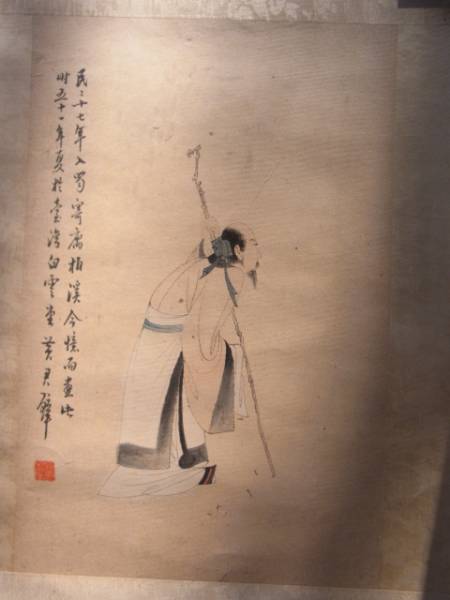 民二十七年入蜀寄寓柏溪今憶而畫此
時五十一年夏於臺灣白雲堂黃君璧